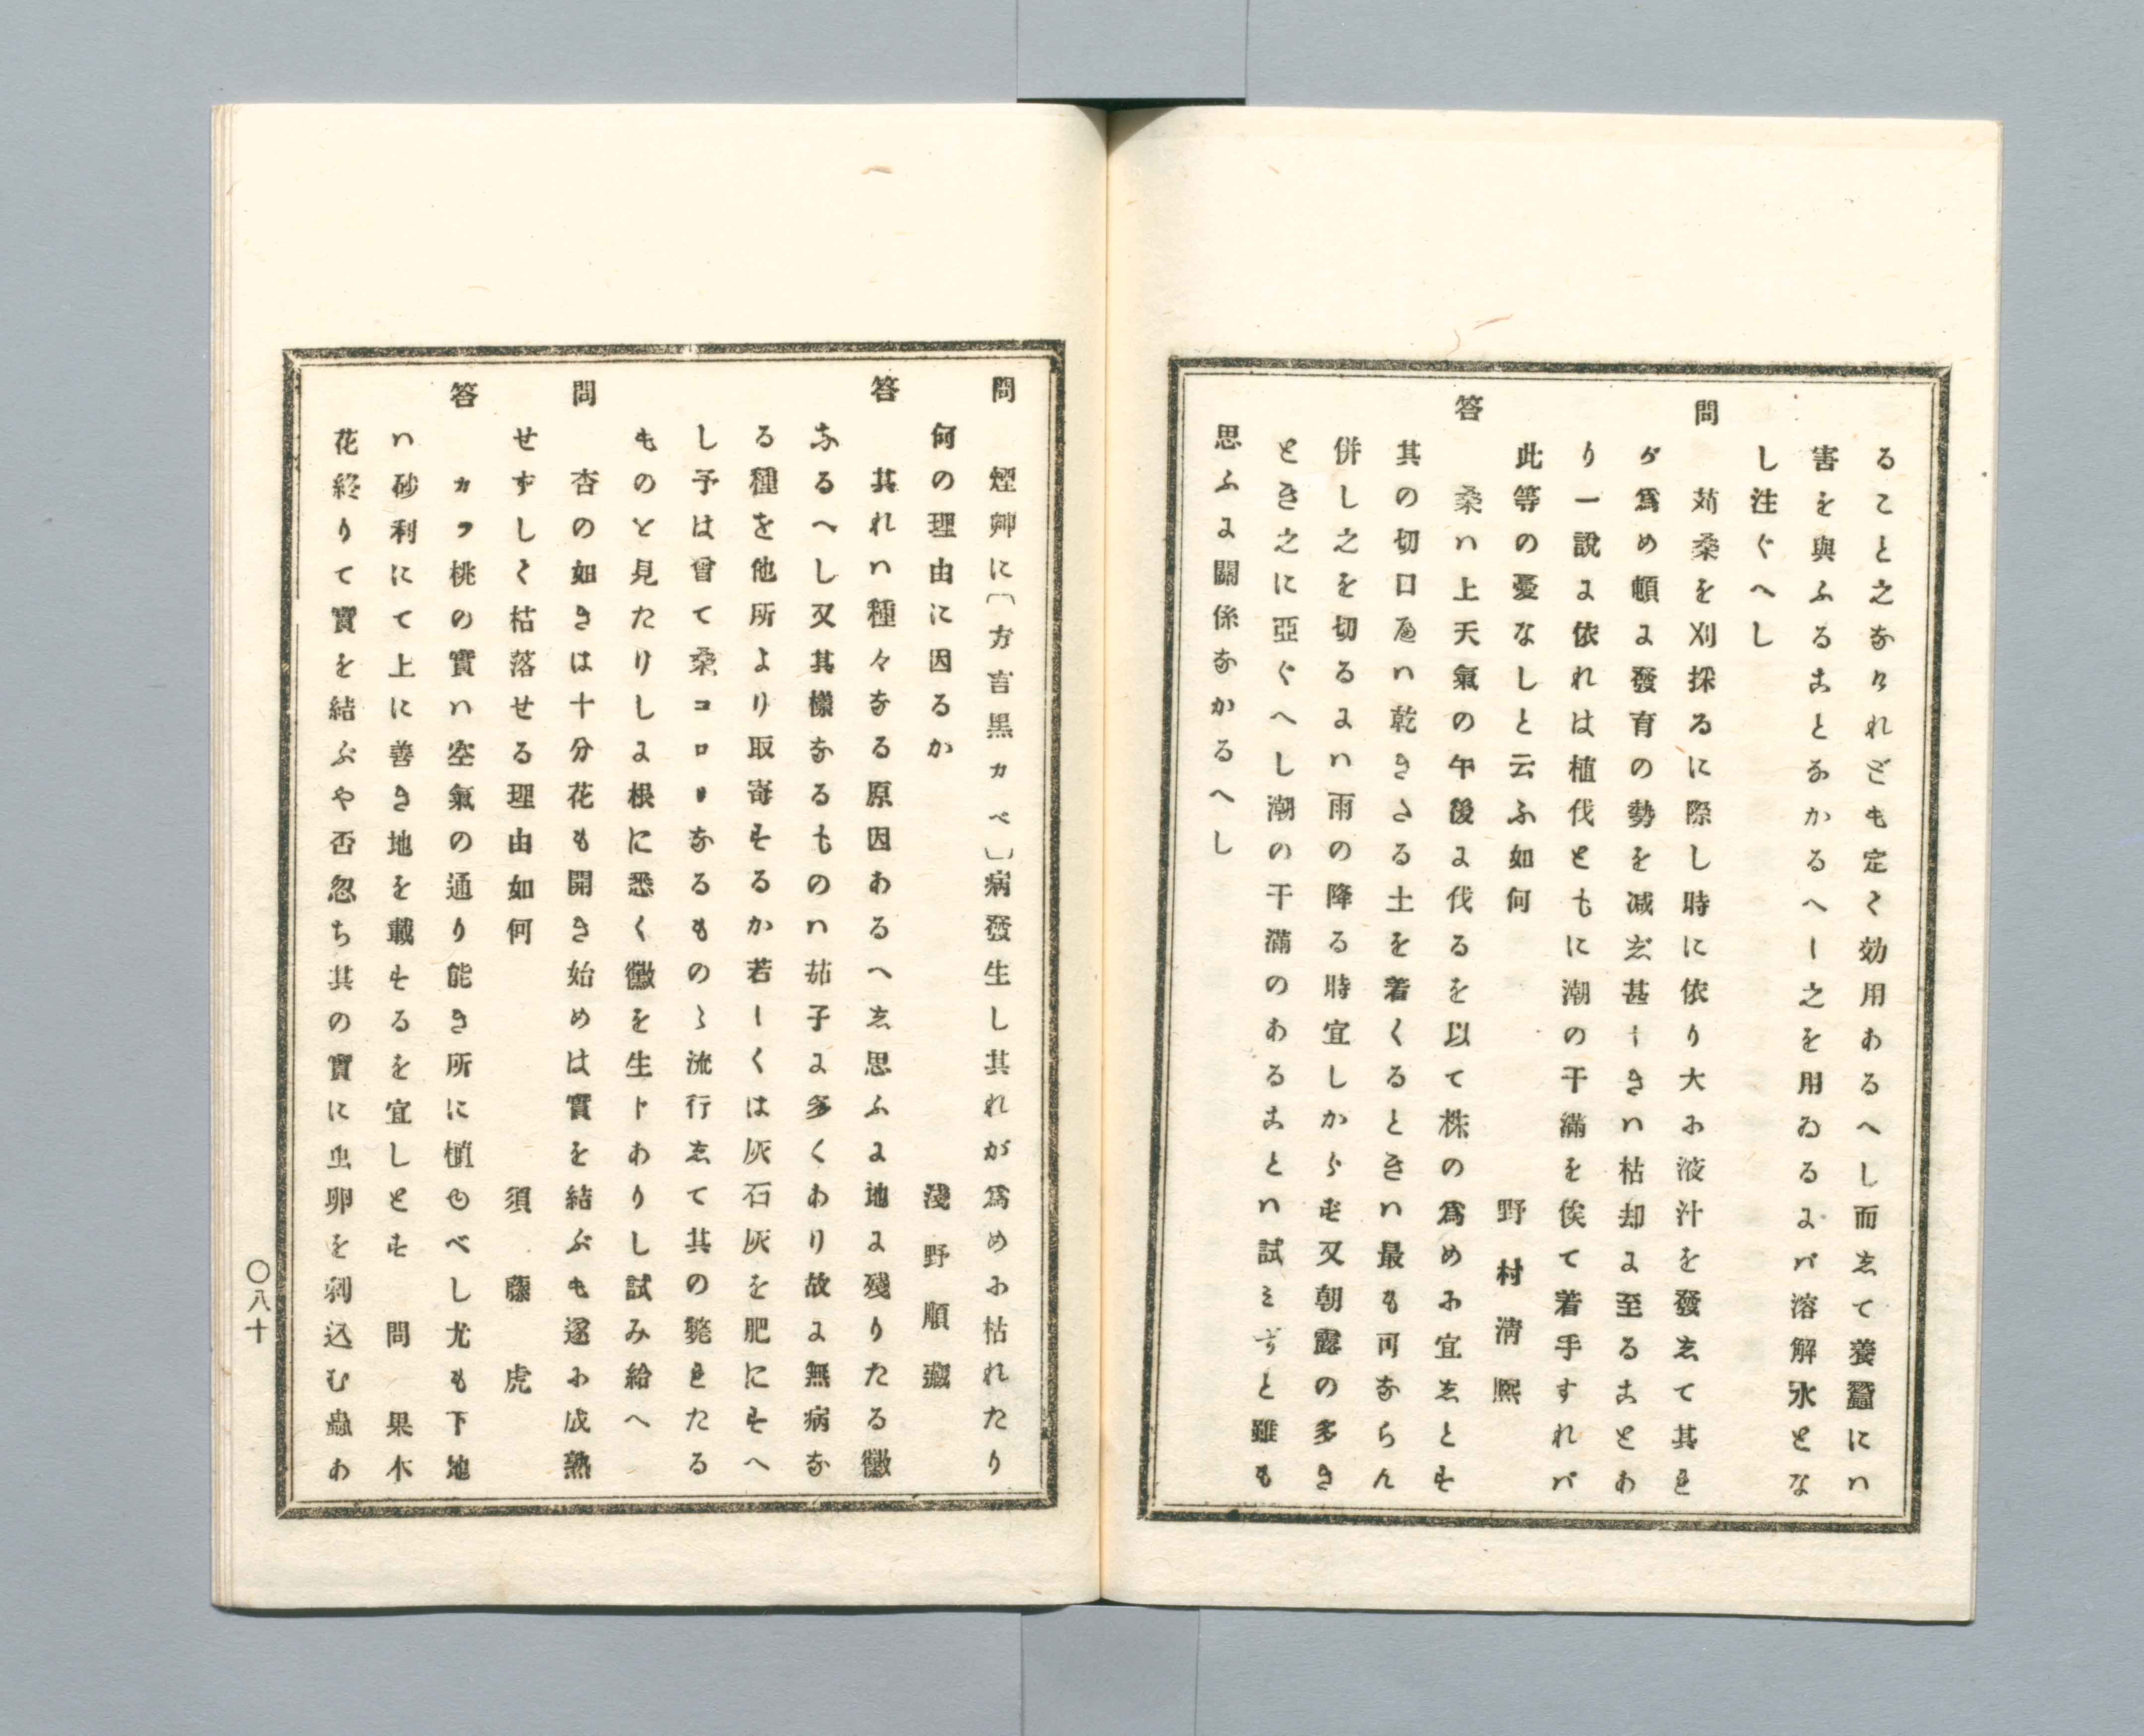 ること之なけれども定て効用あるへし而して養蠶にハ
害を與ふることなかるへし之を用ゐるにハ溶解水とな
し注ぐへし
問 苅桑を刈採るに際し時に依り大に液汁を發して其れ
が爲め頓に發育の勢を减じ甚しきハ枯却に至ることあ
り一説に依れは植伐ともに潮の干滿を俟て着手すれバ
此等の憂なしと云ふ如何 野村淸熈
答 桑ハ上天氣の午後に伐るを以て株の爲めに宜しとす
其の切口へハ乾きたる土を着くるときハ最も可ならん
併し之を切るにハ雨の降る時宜しからす又朝露の多き
とき之に亞ぐへし潮の干滿のあることハ試ミずと雖も
思ふに關係なかるへし
問 煙艸に〔方言黑カベ〕病發生し其れが爲めに枯れたり
何の理由に因るか 淺野順藏
答 其れハ種々なる原因あるへし思ふに地に殘りたる黴
なるへし又其樣なるものハ茄子に多くあり故に無病な
る種を他所より取寄するか若しくは灰石灰を肥にすへ
し予は曾て桑コロリなるものゝ流行して其の斃れたる
ものを見たりしに根に悉く黴を生じありし試み給へ
問 杏の如きは十分花も開き始めは實を結ぶも遂に成熟
せずして枯落せる理由如何 須藤虎
答 カラ桃の實ハ空氣の通り能き所に植ゆべし尤も下地
ハ砂利にて上に善き地を載するを宜しとす 問 果木
花終りて實を結ぶや否忽ち其の實に虫卵を刺込む蟲あ
〇八十